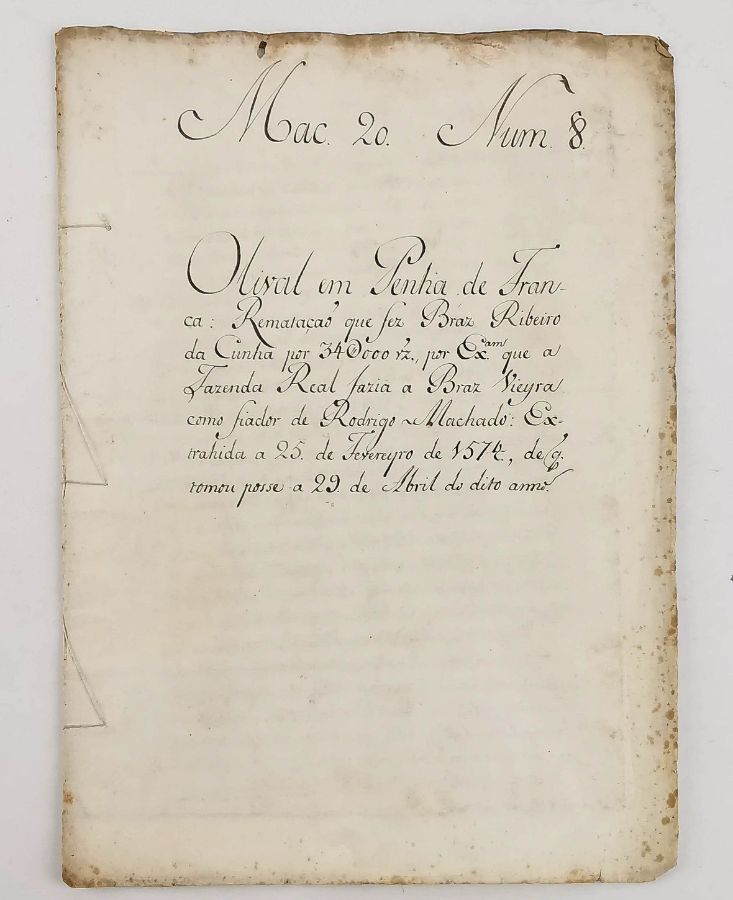 Mac. 20. Num. 8.
Olival em Penha de Fran-
ca: Remataçaõ que fez Braz Ribeiro
da Cunha por 34$000 rz., por Ex.am que a
Fazenda Real fazia a Braz Vieyra
como fiador de Rodrigo Machado: Ex-
trahida a 25. de Fevereyro de 1574., de q.
tomou posse a 29. de Abril do dito anno.